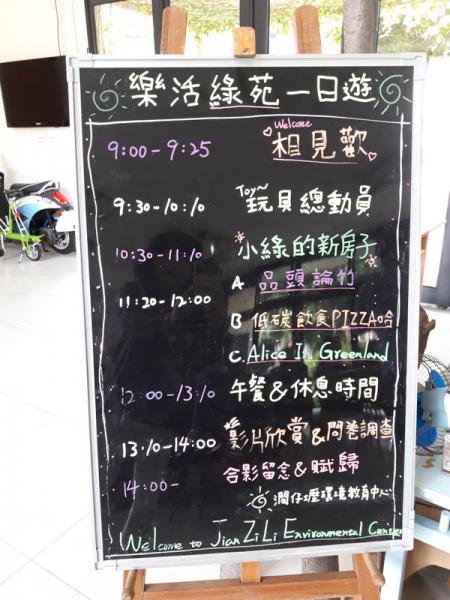 樂活綠苑一日遊
Welcome
9:00-9:25 相見歡
Toy~
9:30-10:10 玩具總動員
10:30-11:10 小綠的新房子
11:20-12:00 A 品頭論竹
B 低碳飲食PIZZA哈
C. Alice In Greenland
12:00-13:10 午餐&休息時間
13:10-14:00 影片欣賞&問卷調查
14:00- 合影留念&賦歸
澗仔壢環境教育中心
Welcome to JianZiLi Environmental Center